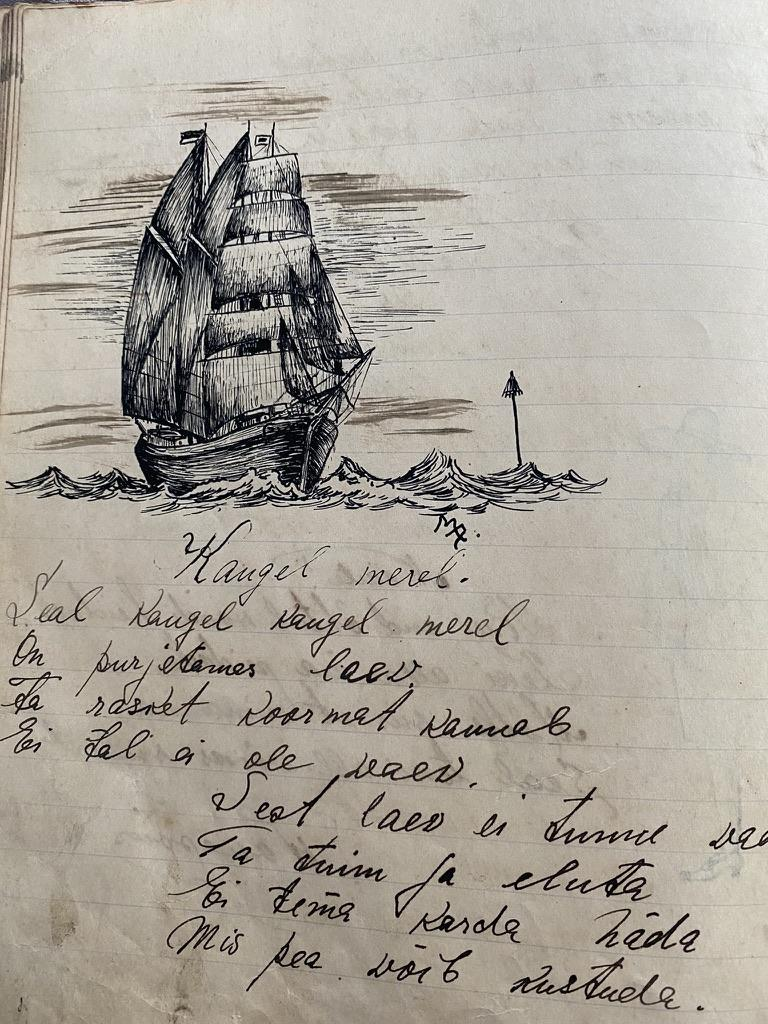 Kaugel merel.
Seal kaugel kaugel merel
On purjetames laev.
Ta rasket koormat kannab.
Ei tal ei ole vaev.
Sest laev ei tunne
Ta tuim ja eluta
Ei tema karda häda
Mis pea võib kustuda.